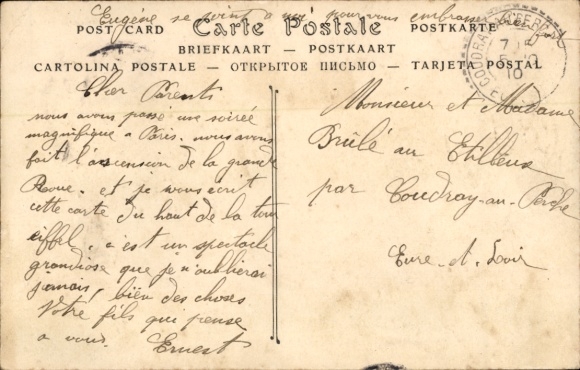 Eugène se joint à moi pour vous embrasser bien fort
Carte Postale
POST CARD POSTKARTE
BRIEFKAART — POSTKAART
CARTOLINA POSTALE — ОТКРЫТОЕ ПИСЬМО — TARJETA POSTAL
COUDRAY AU PERCHE
7
10
Cher Parents
nous avons passé une soirée
magnifique a Paris. nous avons
fait l'ascension de la grande
Roue. et je vous écrit
cette carte du haut de la tour
eiffel, c'est un spectacle
grandiose que je n'oublierai
jamais, bien des choses
Votre fils qui pense
a vous. Ernest
Monsieur et Madame
Brûlé au
par Coudray-au-Perche
Eure-et-Loir